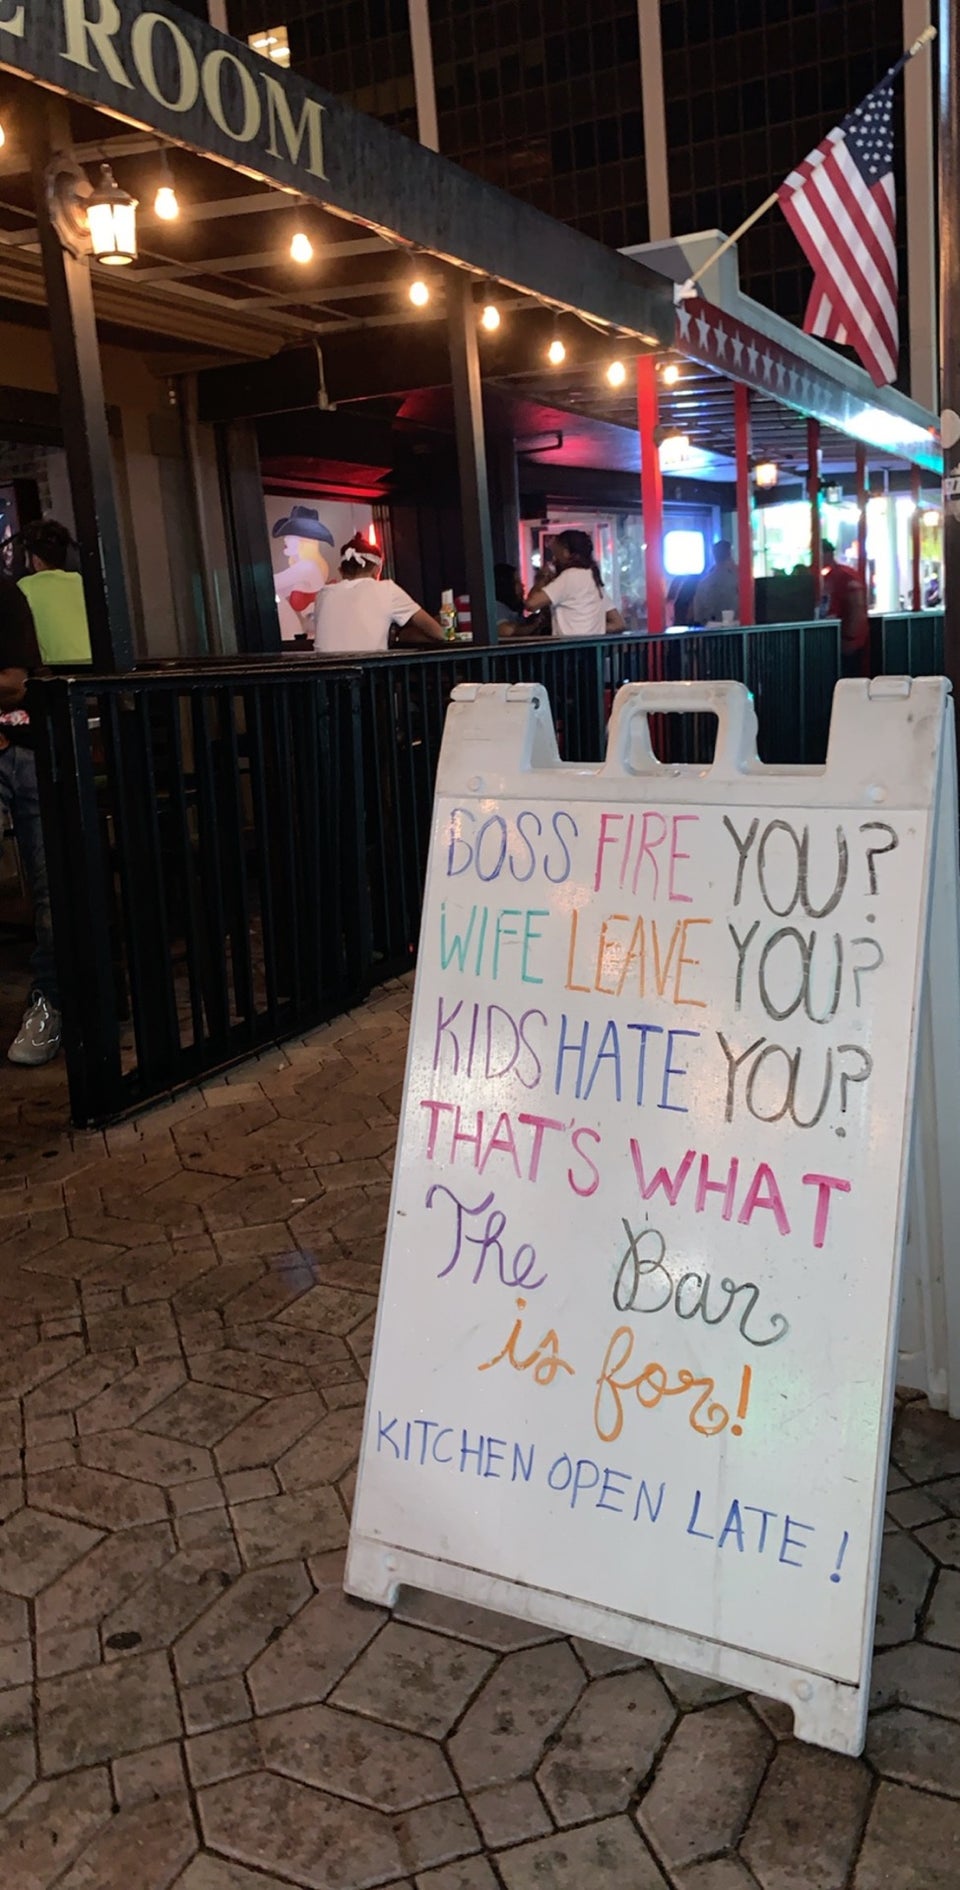 ROOM
BOSS FIRE YOU?
WIFE LEAVE YOU?
KIDS HATE YOU?
THAT'S WHAT
The Bar
is for!
KITCHEN OPEN LATE!